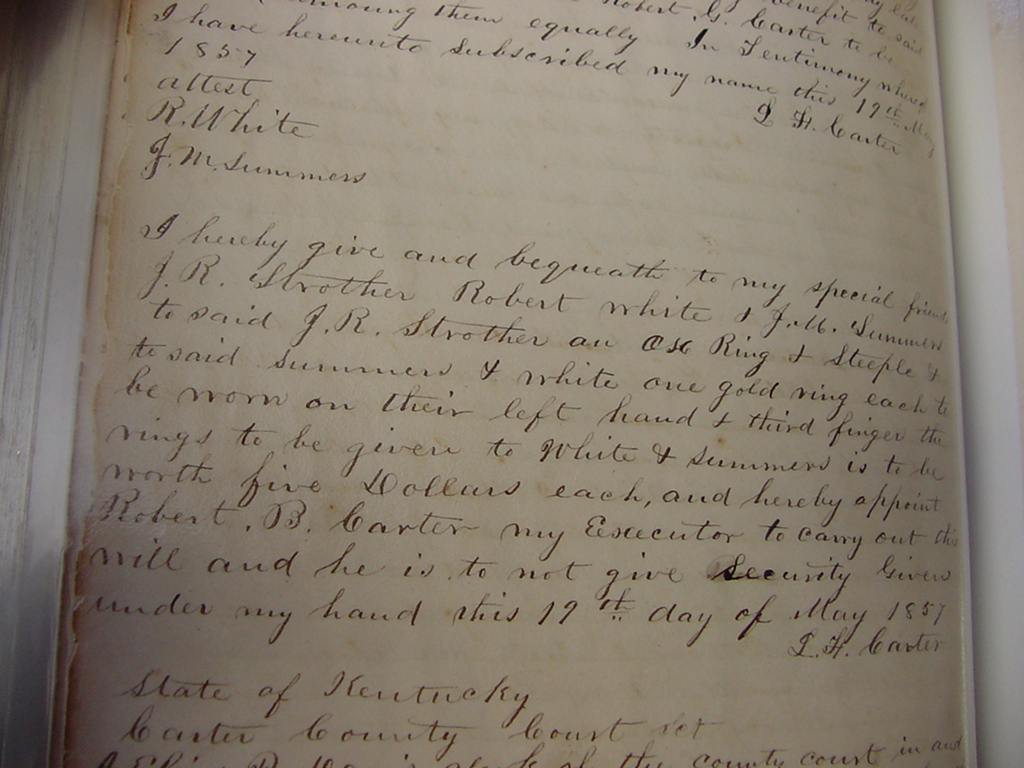 benefit to said
them equally Robert. G. Carter to be
I have hereunto Subscribed my name this 19th May
1857
L. H. Carter
attest
R. White
J. M. Summers
I hereby give and bequeath to my special friends
J. R. Strother Robert White & J. M. Summers
to said J. R. Strother an Ox Ring & Steeple &
to said Summers & White one gold ring each to
be worn on their left hand & third finger the
rings to be given to White & Summers is to be
worth five Dollars each, and hereby appoint
Robert. B. Carter my Executor to carry out this
will and he is to not give Security Given
under my hand this 19th day of May 1857
L. H. Carter
State of Kentucky
Carter County Court Sct
clerk of the county court in and